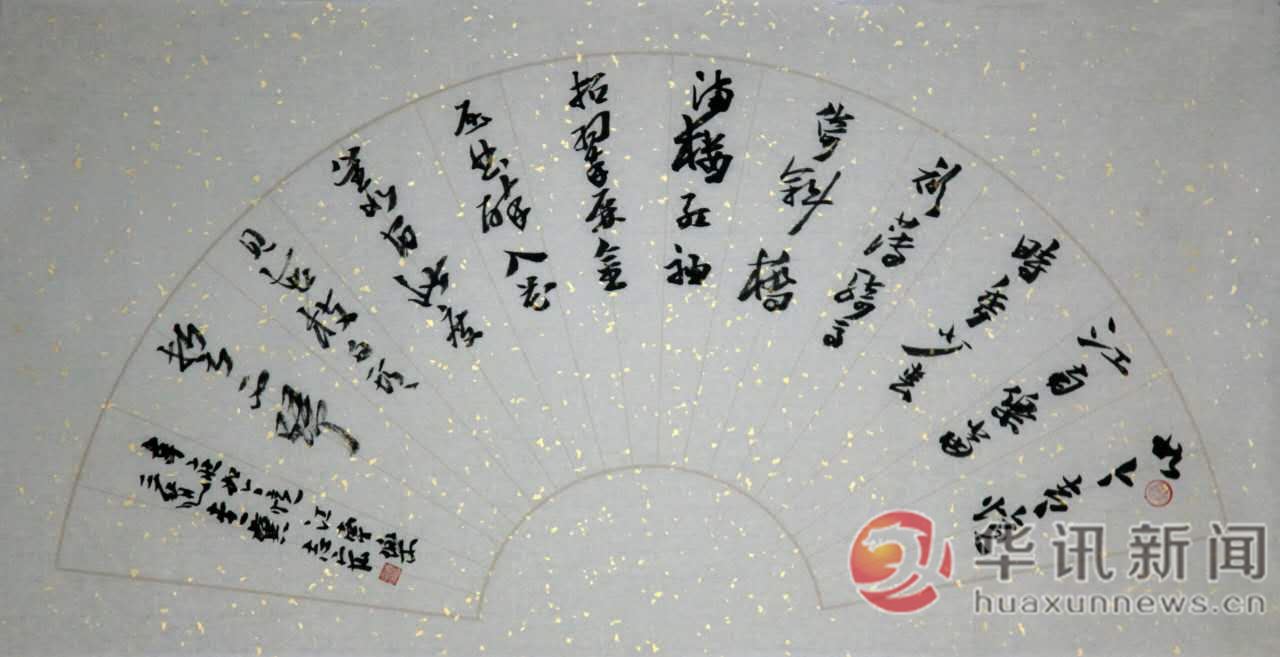 如今却忆
江南樂當
時年少春
衫薄騎马
倚斜橋
满樓红袖
招翠屏金
屈曲醉入花
叢宿此度
见花枝白頭
誓不归
江南樂
华讯新闻
huaxunnews.cn